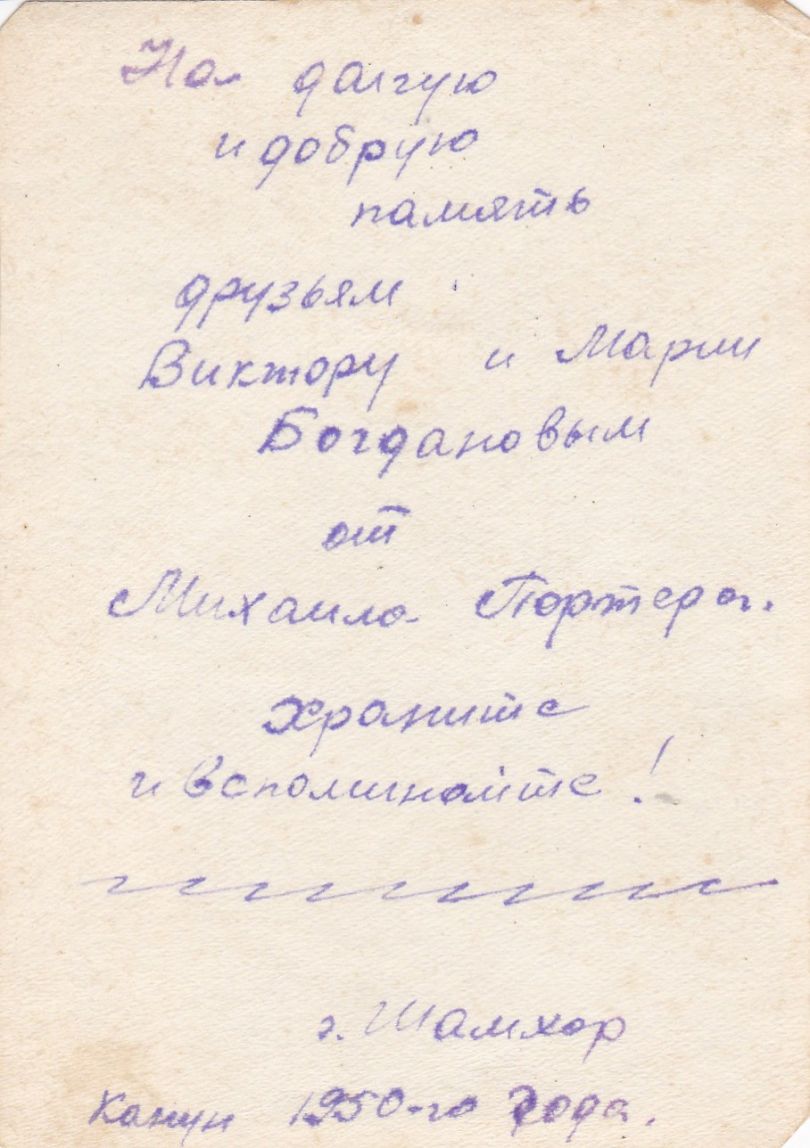 На долгую
и добрую
память
друзьям
Виктору и Марии
Богдановым
от
Михаила Портера.
Храните
и вспоминайте!
г. Шамхор
Канун 1950-го года.